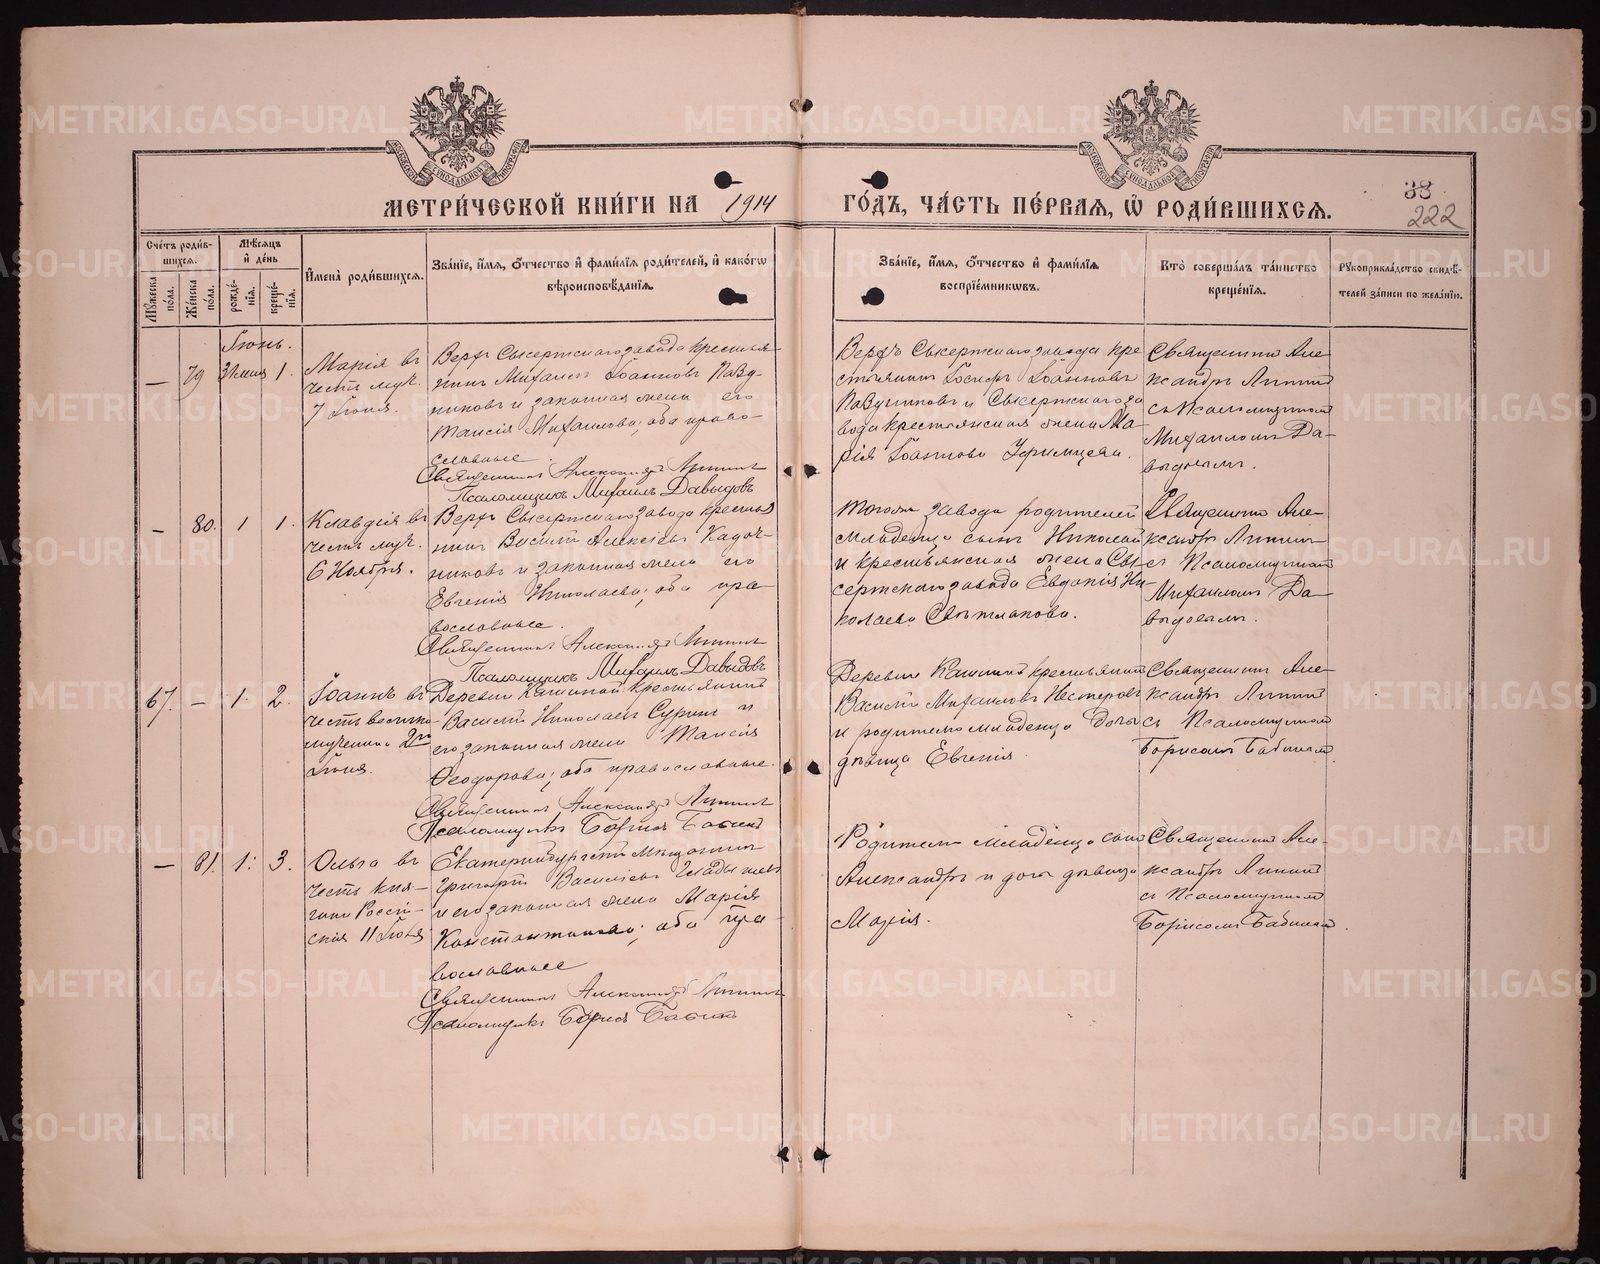 МЕТРИ́ЧЕСКОЙ КНИ́ГИ НА 1914 ГО́ДЪ, ЧА́СТЬ ПЕ́РВАЯ, Ѡ РОДИ́ВШИХСЯ.
33
222
Сче́тъ роди́в-
шихся.
Мꙋ́жеска по́ла.
Же́нска по́ла.
Мѣ́сяцъ и҆ де́нь
рожде́нїя.
креще́нїя.
И҆мена̀ роди́вшихся.
Зва́нїе, и҆́мя, ѻ҆́тчество и҆ фами́лїя роди́телей, и҆ како́гѡ
вѣроисповѣ́данїя.
Зва́нїе, и҆́мя, ѻ҆́тчество и҆ фами́лїя
воспрїе́мникѡвъ.
Кто̀ соверша́лъ та́инство
креще́нїя.
Рꙋкоприкла́дство свидѣ́-
телей за́писи по жела́нїю.
— 79 Іюнь.
31 мая 1.
Марія въ
честь муч.
7 Іюня.
Верхъ Сысертскаго завода крестья-
нинъ Михаилъ Іоанновъ
никовъ и законная жена его
Таисія Михаилова; оба право-
славные.
Священникъ Александръ
Псаломщикъ Михаилъ Давыдовъ
Верхъ Сысертскаго завода кре
стьянинъ Іоанновъ
и Сысертскаго за
вода крестьянская жена Ма
рія Іоаннова
Священникъ Але
ксандръ
съ Псаломщикомъ
Михаиломъ Да-
выдовымъ.
— 80. 1 1.
Клавдія въ
честь муч.
6 Ноября.
Верхъ Сысертскаго завода крестья
нинъ Василій Алексѣевъ Кадоч-
никовъ и законная жена его
Евгенія Николаева; оба пра
вославные.
Священникъ Александръ
Псаломщикъ Михаилъ Давыдовъ
Того же завода родителей
младенца сынъ Николай
и крестьянская жена Сы-
сертскаго завода Евдокія Ни-
колаева Свѣтлакова.
Священникъ Але-
ксандръ
съ Псаломщикомъ
Михаиломъ Да-
выдовымъ.
67. — 1. 2.
Іоаннъ въ
честь велико
мученика 2го
Іюня.
Деревни Кашиной крестьянинъ
Василій Николаевъ Суринъ и
его законная жена Таисія
Ѳеодорова; оба православные.
Священникъ Александръ
Псаломщикъ Борисъ
Деревни Кашиной крестьянинъ
Василій Михаиловъ Нестеровъ
и родителей младенца дочь
дѣвица Евгенія.
Священникъ Але
ксандръ
съ Псаломщикомъ
Борисомъ
— 81. 1. 3.
Ольга въ
честь кня-
гини Россій-
скія 11 Іюля
Екатеринбургскій мѣщанинъ
Григорій Василіевъ Гладышевъ
и его законная жена Марія
Константинова; оба пра
вославные
Священникъ Александръ
Псаломщикъ Борисъ
Родителей младенца сынъ
Александръ и дочь дѣвица
Марія.
Священникъ Але-
ксандръ
съ Псаломщикомъ
Борисомъ
METRIKI.GASO-URAL.RU